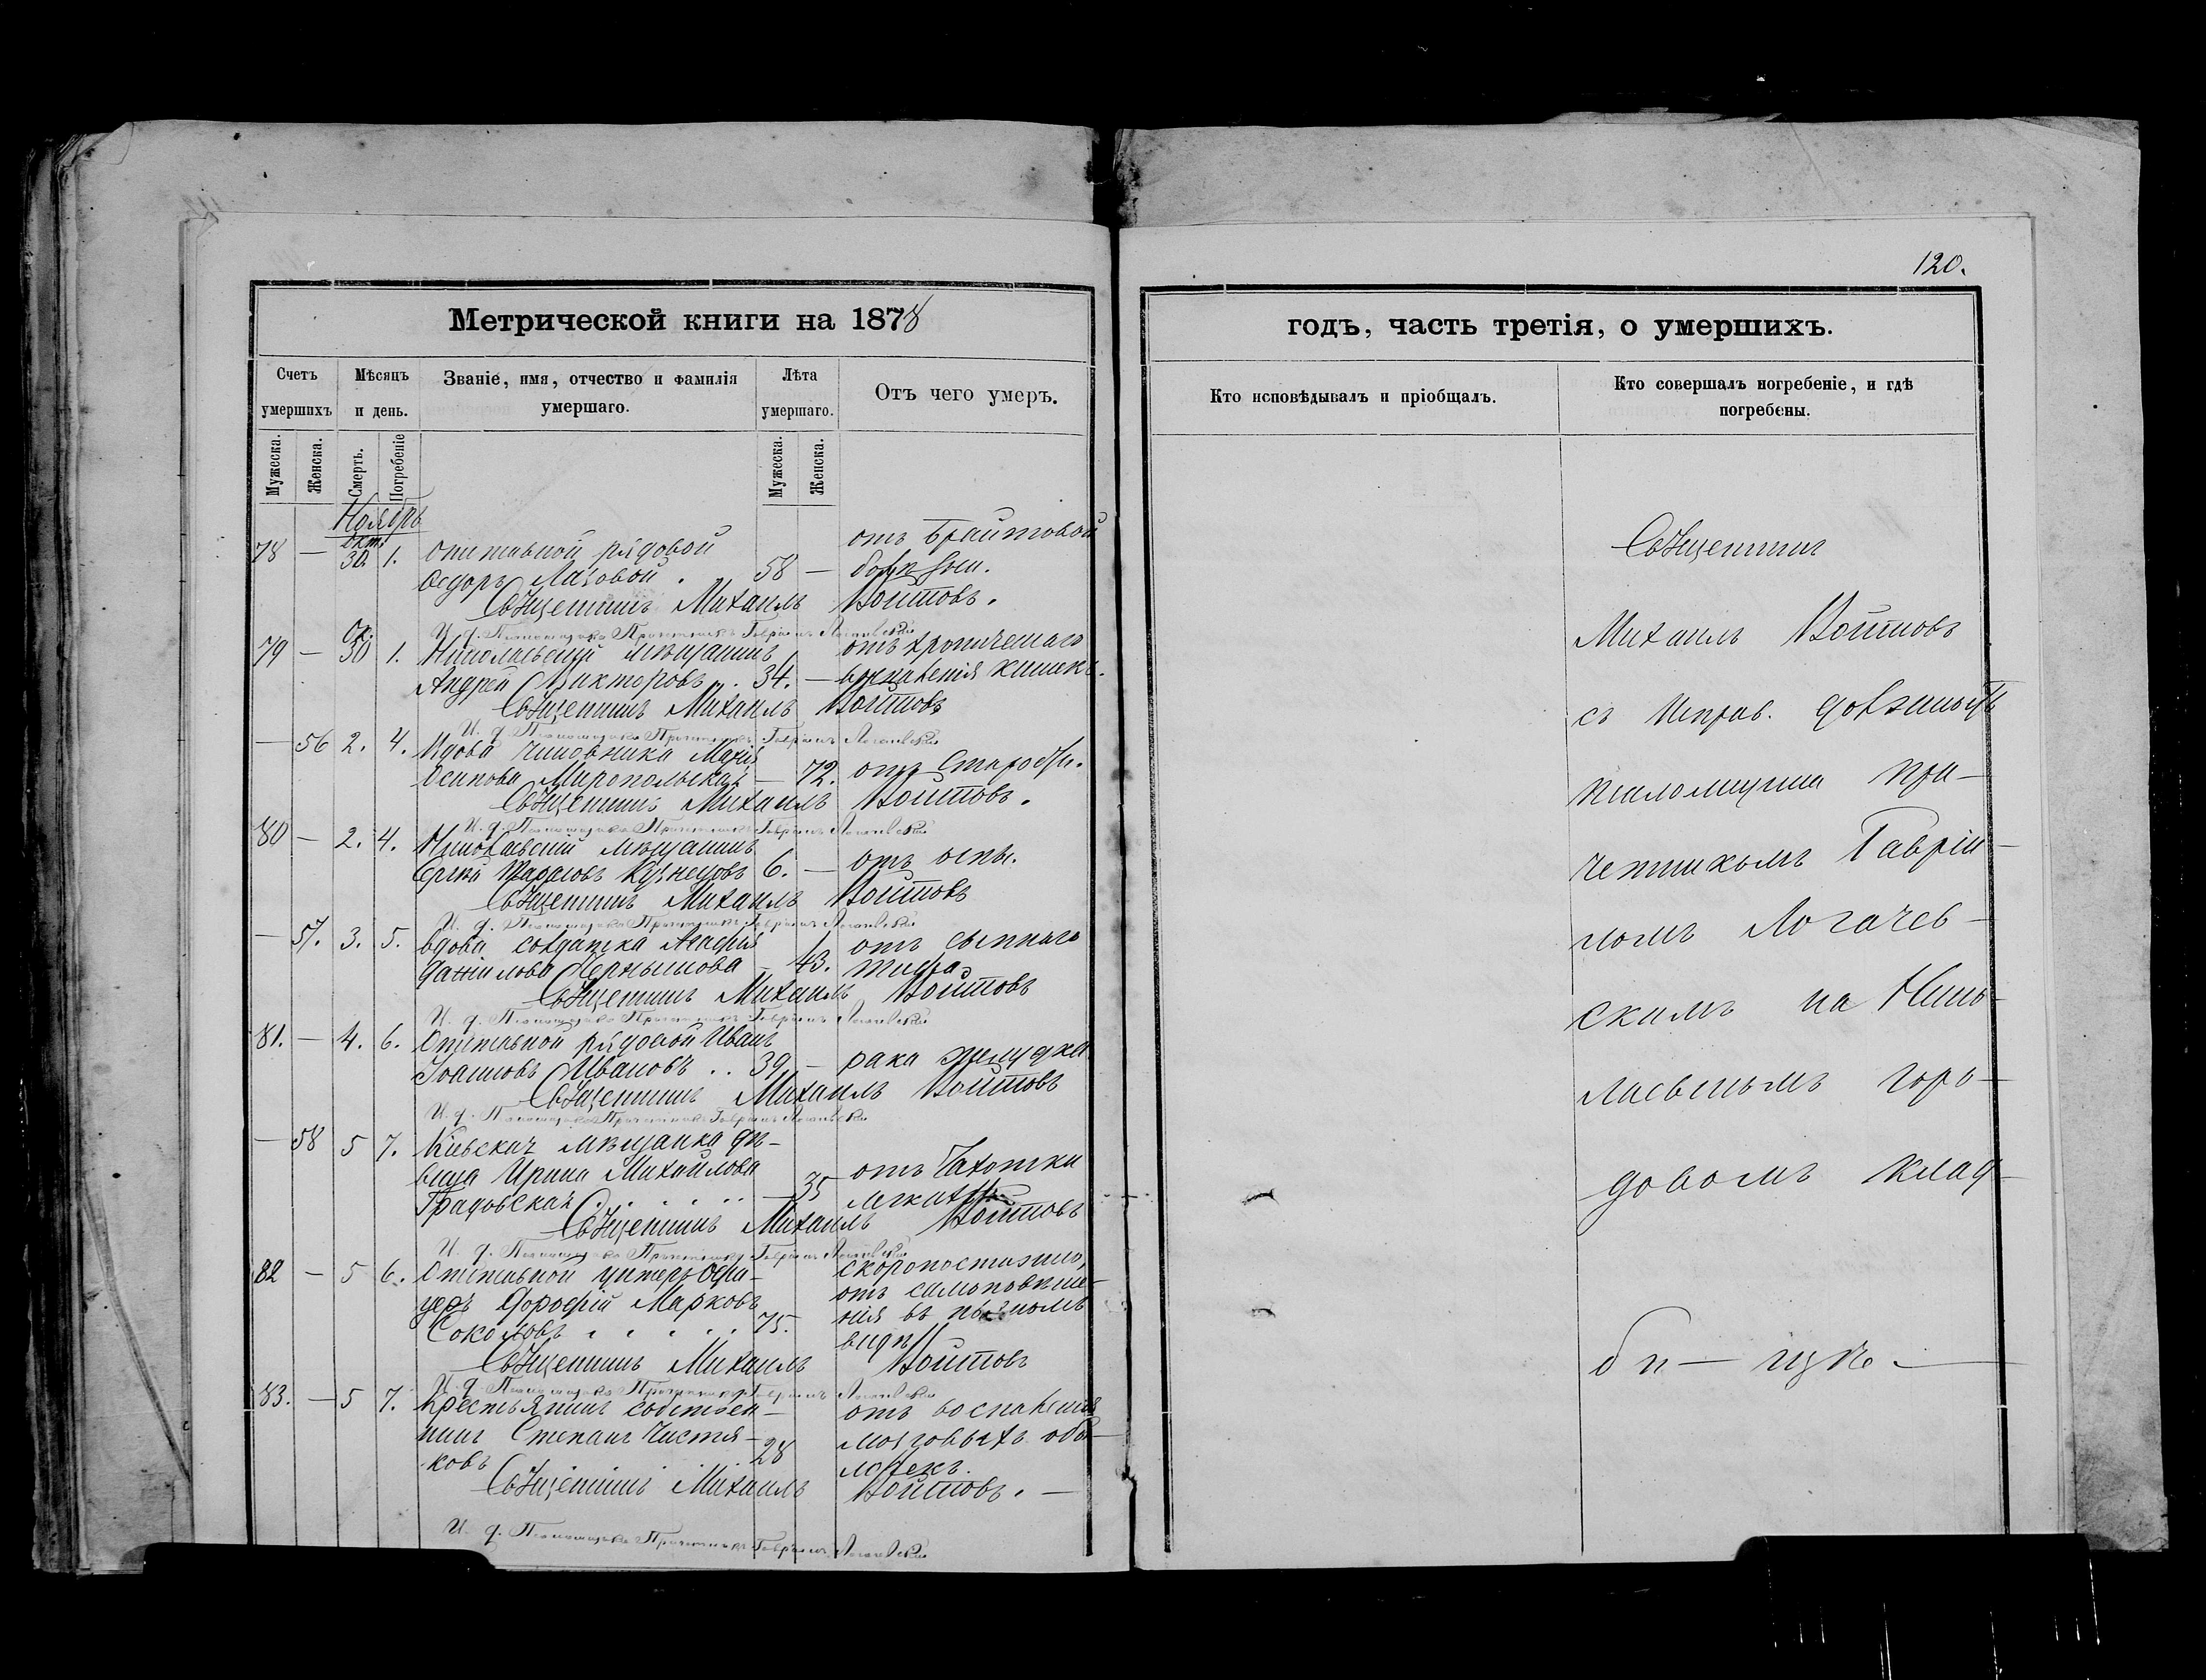 120.
Метрической книги на 1878
годъ, часть третія, о умершихъ.
Счетъ умершихъ
Мѣсяцъ и день.
Званіе, имя, отчество и фамилія умершаго.
Лѣта умершаго.
Отъ чего умеръ.
Кто исповѣдывалъ и пріобщалъ.
Кто совершалъ погребеніе, и гдѣ погребены.
Мужеска. Женска. Смерть. Погребеніе Мужеска. Женска.
Ноябрь
Окт.
78 — 30 1. Отставной рядовой отъ Брайтовой
Ѳедоръ Лазовой . 58 — болѣзни.
Священникъ Михаилъ Войтовъ.
И. д. Псаломщика Причетникъ Гавріилъ Логачевскій
Ок.
79 — 30 1. Николаевскій мѣщанинъ отъ хроническаго
Андрей Викторовъ . . 34. — воспаленія кишекъ.
Священникъ Михаилъ Войтовъ
И. д. Псаломщика Причетникъ Гавріилъ Логачевскій
— 56 2. 4. Вдова чиновника Марія
Осипова Миропольская — 72. отъ старости.
Священникъ Михаилъ Войтовъ.
И. д. Псаломщика Причетникъ Гавріилъ Логачевскій
80 — 2. 4. Николаевскій мѣщанинъ
Сергѣй Кузнецовъ 6. — отъ оспы.
Священникъ Михаилъ Войтовъ
И. д. Псаломщика Причетникъ Гавріилъ Логачевскій
— 57. 3. 5. Вдова солдатка Агафія отъ сыпнаго
Даніилова Чернышова — 43. тифа
Священникъ Михаилъ Войтовъ
И. д. Псаломщика Причетникъ Гавріилъ Логачевскій
81. — 4. 6. Отставной рядовой Иванъ
Іоанновъ Ивановъ . . 39 — рака желудка
Священникъ Михаилъ Войтовъ
И. д. Псаломщика Причетникъ Гавріилъ Логачевскій
— 58 5 7. Кіевская мѣщанка дѣ-
вица Ирина Михайлова отъ чахотки
Градовская . . . . . — 35 легкихъ
Священникъ Михаилъ Войтовъ
И. д. Псаломщика Причетникъ Гавріилъ Логачевскій
82 — 5 6. Отставной унтеръ-офи- скоропостижно,
церъ Дорофій Марковъ отъ самоповѣше-
Соколовъ . . . . . 75. нія въ пьяномъ
видѣ
Священникъ Михаилъ Войтовъ
И. д. Псаломщика Причетникъ Гавріилъ Логачевскій
83. — 5 7. Крестьянинъ собствен- отъ воспаленія
никъ Степанъ Чистя- 28 мозговыхъ обо-
ковъ . . . лочекъ.
Священникъ Михаилъ Войтовъ. —
И. д. Псаломщика Причетникъ Гавріилъ Логачевскій
Священникъ
Михаилъ Войтовъ
съ исправ. должность
псаломщика при-
четникомъ Гавріи-
ломъ Логачев-
скимъ на Нико-
лаевскомъ горо-
довомъ клад-
би — щѣ. —